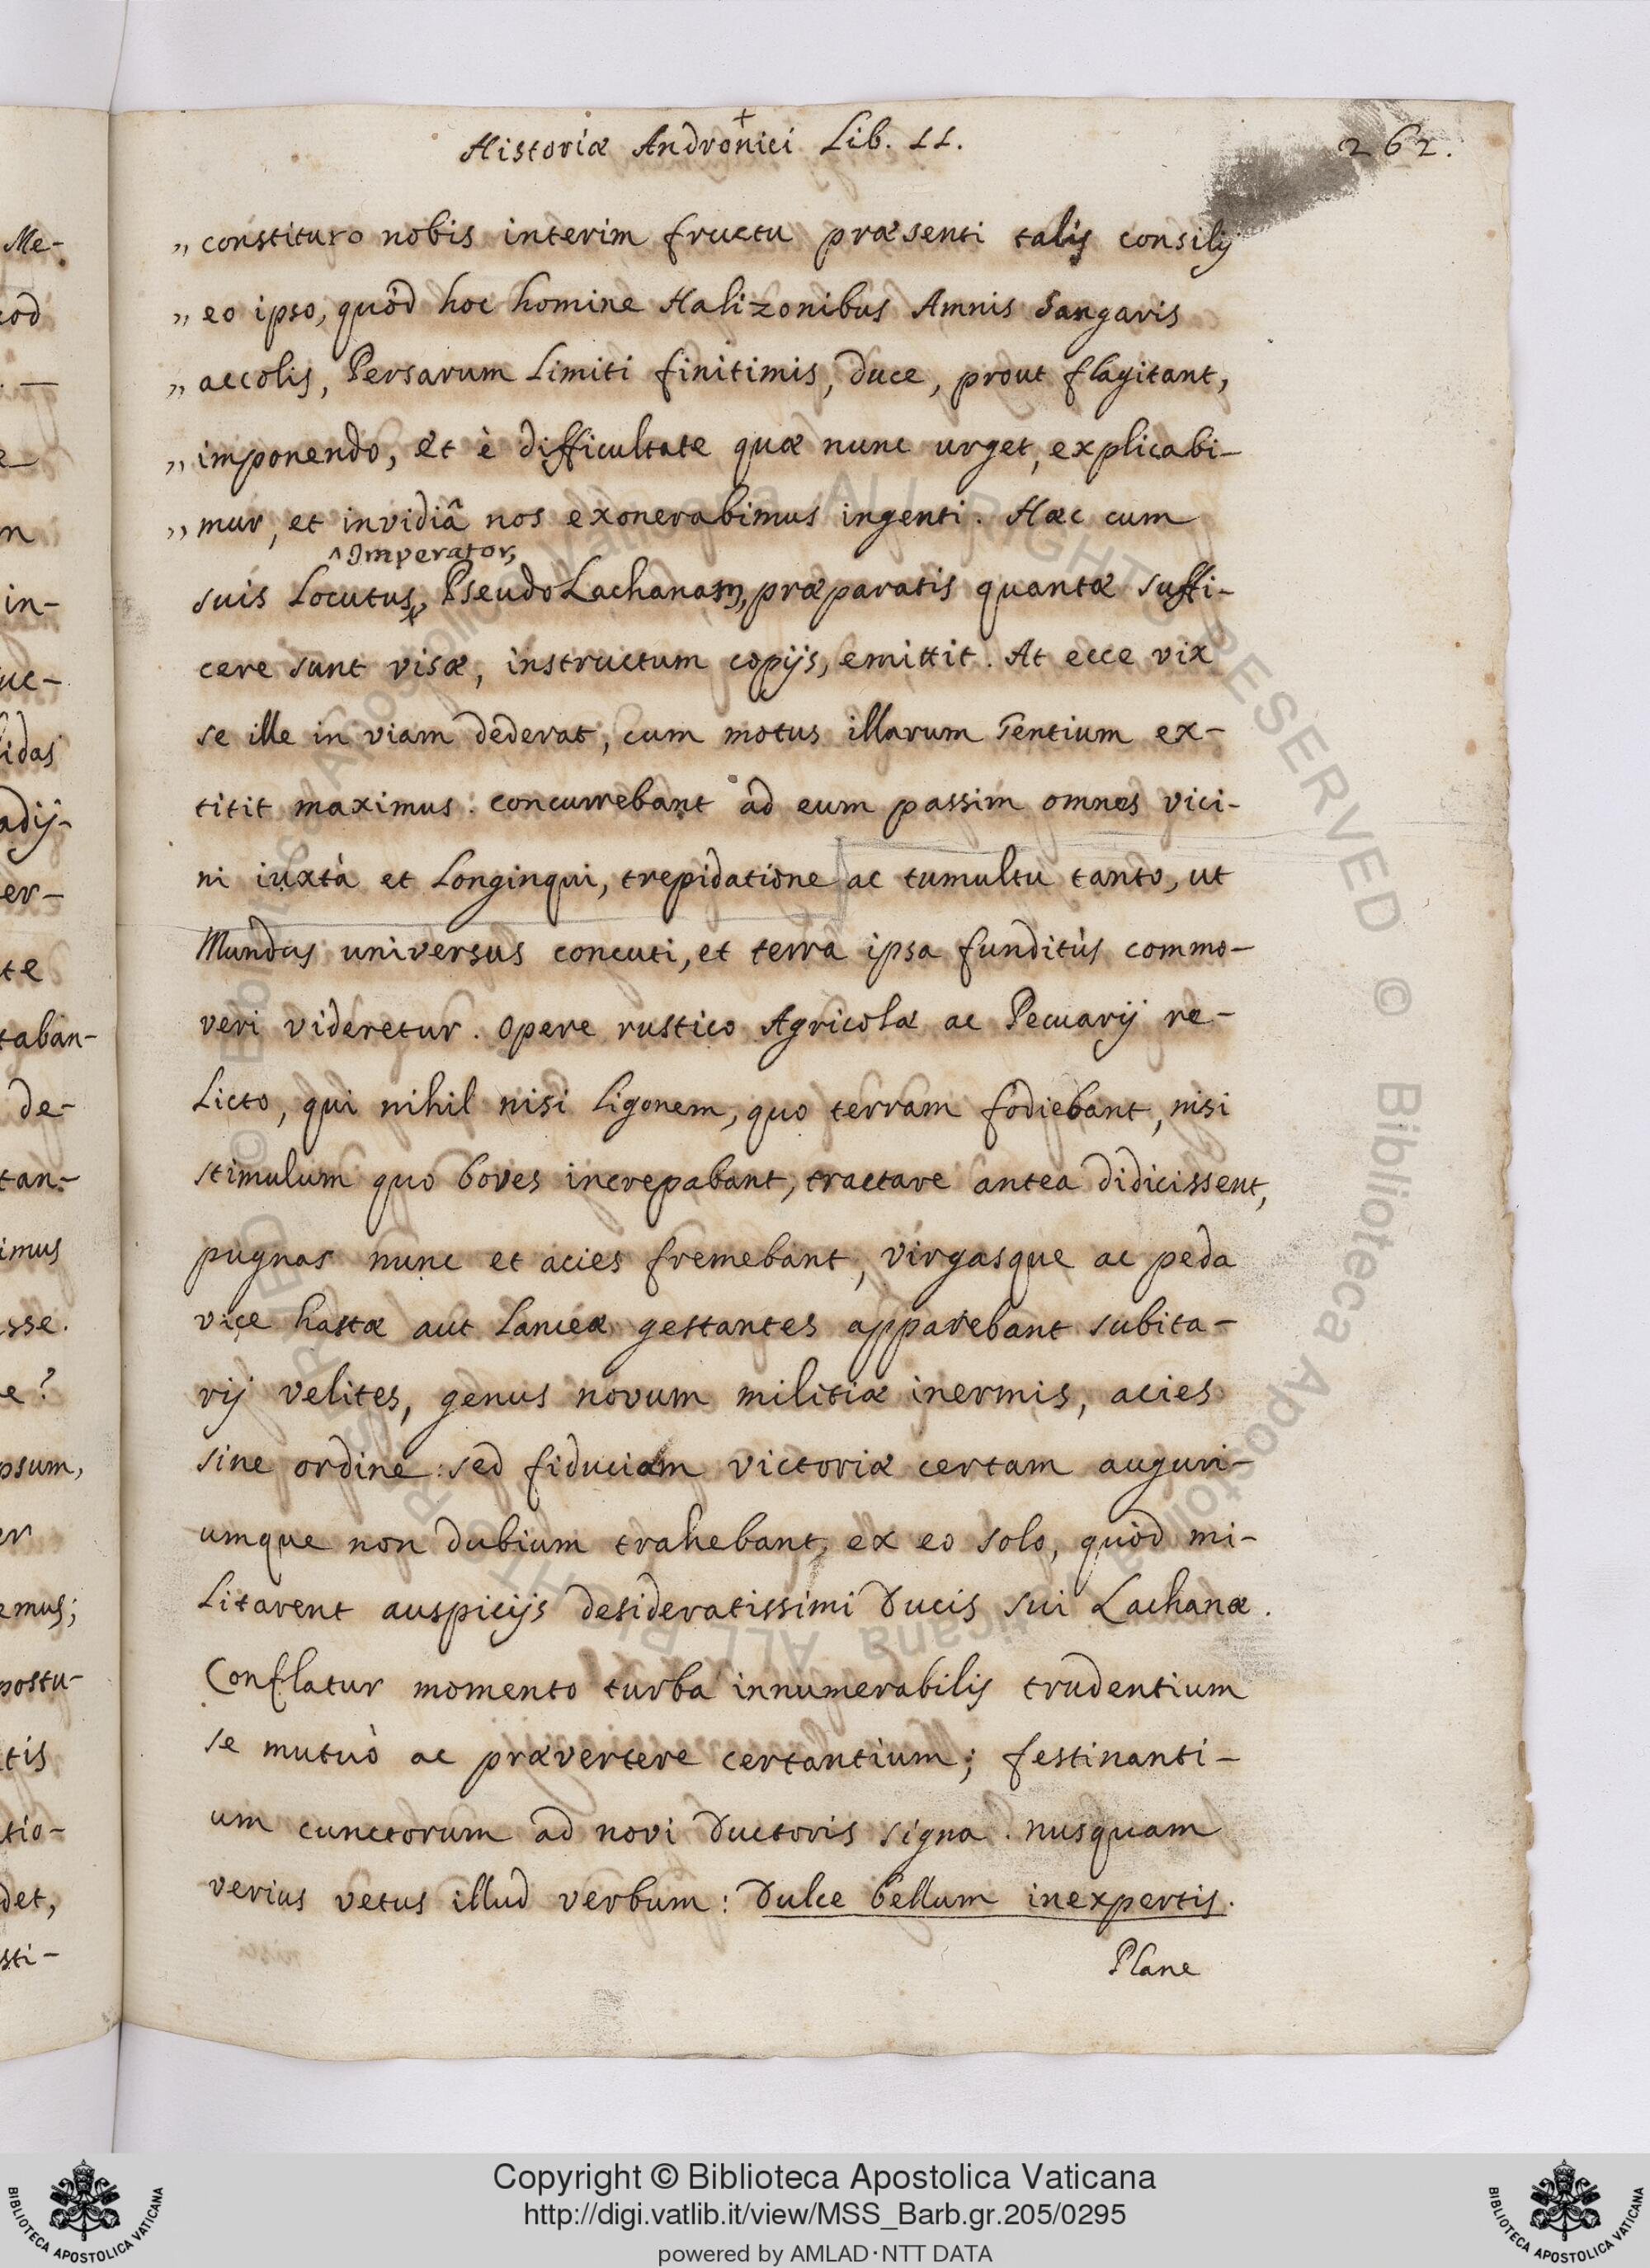 Historiæ Andronici Lib. II.
262.
„ constituto nobis interim fructu præsenti talis consilij
„ eo ipso, quòd hoc homine Halizonibus Amnis Sangaris
„ accolis, Persarum Limiti finitimis, duce, prout flagitant,
„ imponendo, et è difficultate quæ nunc urget, explicabi-
„ mur, et invidiâ nos exonerabimus ingenti. Hæc cum
Imperator,
suis Locutus, PseudoLachanam, præparatis quantæ suffi-
cere sunt visæ, instructum copijs, emittit. At ecce vix
se ille in viam dederat, cum motus illarum Gentium ex-
titit maximus: concurrebant ad eum passim omnes vici-
ni iuxtà et Longinqui, trepidatione ac tumultu tanto, ut
Mundus universus concuti, et terra ipsa funditùs commo-
veri videretur. Opere rustico Agricolæ ac Pecuarij re-
Licto, qui nihil nisi ligonem, quo terram fodiebant, nisi
stimulum quo boves increpabant, tractare antea didicissent,
pugnas nunc et acies fremebant, virgasque ac peda
vice hastæ aut Lanceæ gestantes apparebant subita-
rij velites, genus novum militiæ inermis, acies
sine ordine: sed fiduciam victoriæ certam auguri-
umque non dubium trahebant, ex eo solo, quòd mi-
Litarent auspicijs desideratissimi Ducis sui Lachanæ.
Conflatur momento turba innumerabilis trudentium
se mutuò ac prævertere certantium; festinanti-
um cunctorum ad novi Ductoris signa. nusquam
verius vetus illud verbum: Dulce bellum inexpertis.
Plane
Me-
in-
idas
adij-
er-
te
taban-
de-
tan-
imus
sse.
e?
psum,
er
emus;
postu-
tis
tio-
det,
sti-
Copyright © Biblioteca Apostolica Vaticana
http://digi.vatlib.it/view/MSS_Barb.gr.205/0295
powered by AMLAD·NTT DATA
BIBLIOTECA APOSTOLICA VATICANA
BIBLIOTECA APOSTOLICA VATICANA